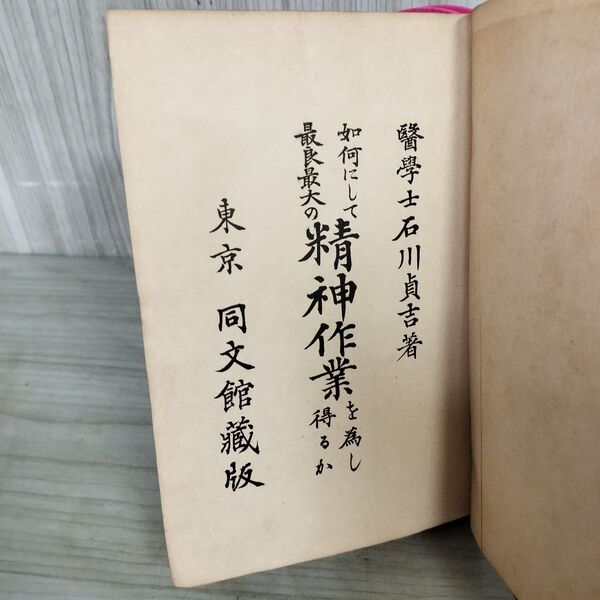 醫學士石川貞吉著
如何にして
最良最大の
精神作業
を為し
得るか
東京 同文館藏版